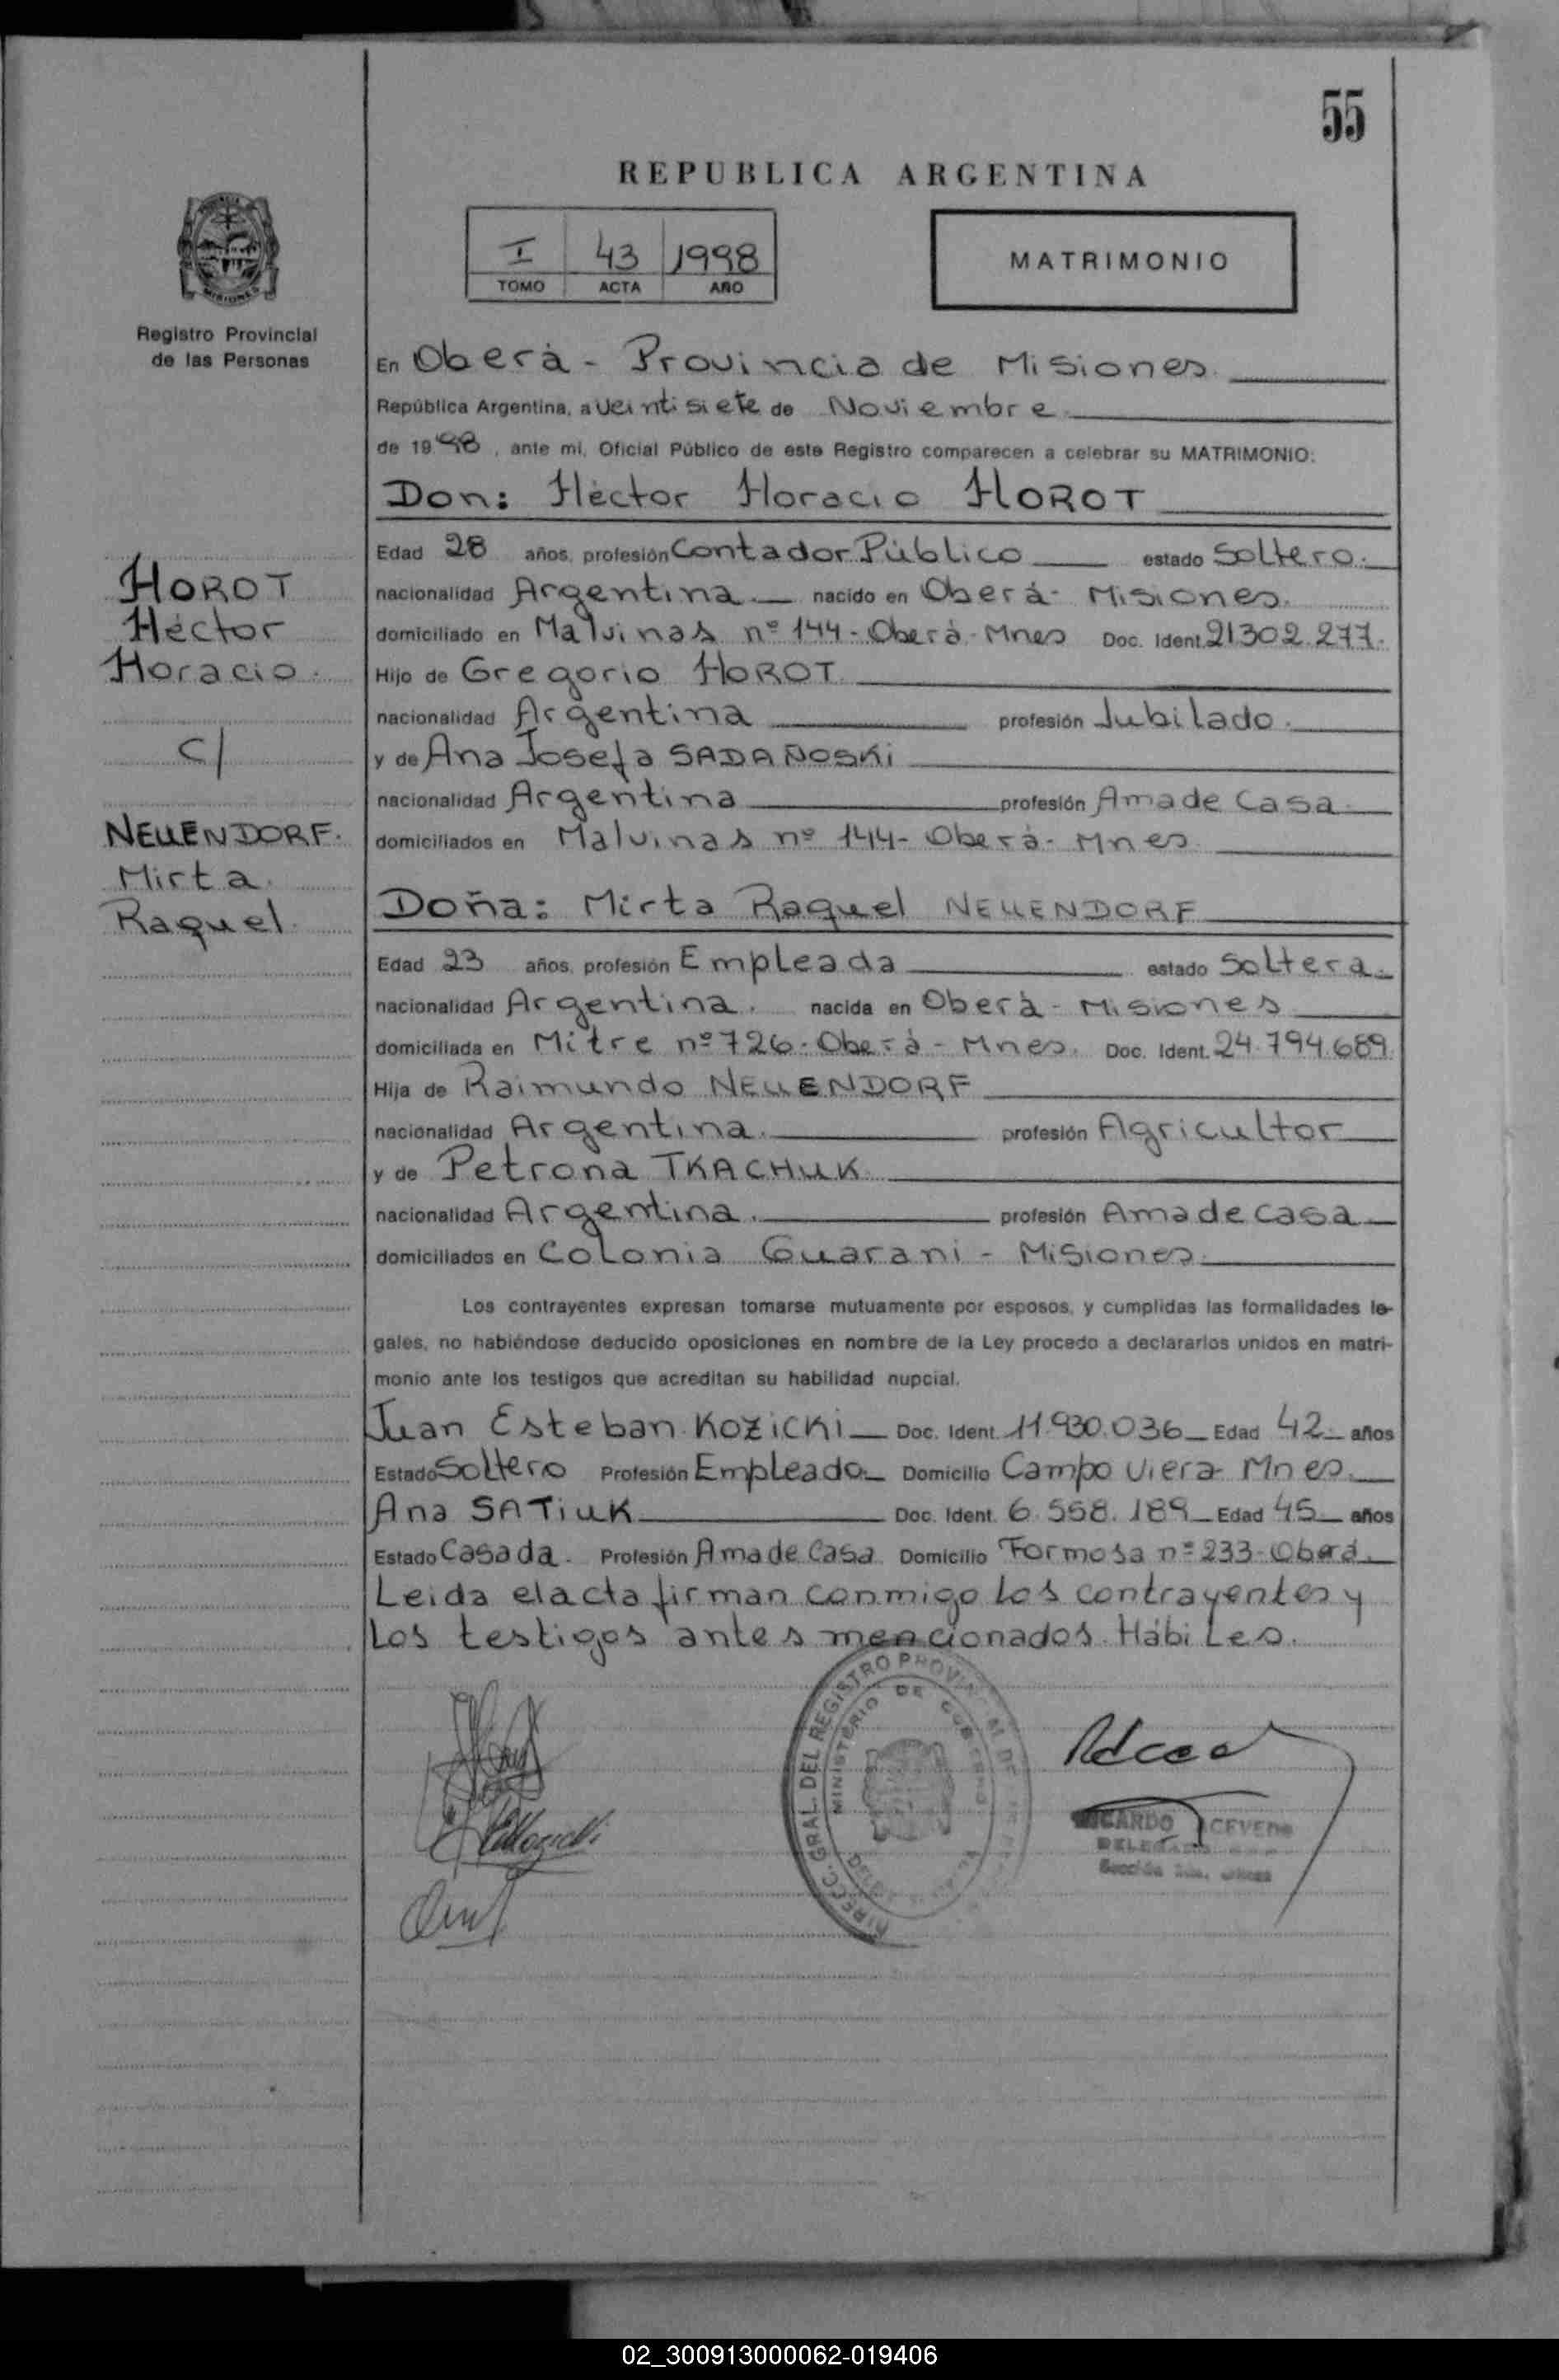 55
REPUBLICA ARGENTINA
I 43 1998
TOMO ACTA AÑO
MATRIMONIO
MISIONES
Registro Provincial
de las Personas
En Oberà - Provincia de Misiones.
República Argentina, a veintisiete de Noviembre
de 19 98, ante mí, Oficial Público de este Registro comparecen a celebrar su MATRIMONIO:
Don: Hèctor Horacio HOROT
Edad 28 años, profesión Contador Pùblico estado Soltero.
nacionalidad Argentina. nacido en Oberá- Misiones.
domiciliado en Malvinas nº 144- Oberà- Mnes Doc. Ident. 21302.277.
Hijo de Gregorio HOROT.
nacionalidad Argentina profesión Jubilado.
y de Ana Josefa SADAÑOSKi
nacionalidad Argentina profesión Ama de Casa.
domiciliados en Malvinas nº 144- Oberà- Mnes.
HOROT
Héctor
Horacio.
c/
NEUENDORF.
Mirta.
Raquel.
Doña: Mirta Raquel NEUENDORF
Edad 23 años, profesión Empleada estado Soltera.
nacionalidad Argentina. nacida en Oberà- Misiones
domiciliada en Mitre nº 726- Oberà- Mnes. Doc. Ident. 24.794.689.
Hija de Raimundo NEUENDORF
nacionalidad Argentina. profesión Agricultor
y de Petrona TKACHUK.
nacionalidad Argentina. profesión Ama de casa
domiciliados en Colonia Guarani - Misiones.
Los contrayentes expresan tomarse mutuamente por esposos, y cumplidas las formalidades le-
gales, no habiéndose deducido oposiciones en nombre de la Ley procedo a declararlos unidos en matri-
monio ante los testigos que acreditan su habilidad nupcial.
Juan Esteban KOZiCKi Doc. Ident. 11.930.036 Edad 42 años
Estado Soltero Profesión Empleado Domicilio Campo Viera- Mnes.
Ana SATiUK Doc. Ident. 6.558.189 Edad 45 años
Estado Casada. Profesión Ama de Casa. Domicilio Formosa nº 233- Oberà.
Leida el acta firman conmigo los contrayentes y
los testigos antes mencionados. Hábiles.
DIRECC. GRAL. DEL REGISTRO PROVINCIAL DE
MINISTERIO DE GOBIERNO
RICARDO ACEVEDO
02_300913000062-019406